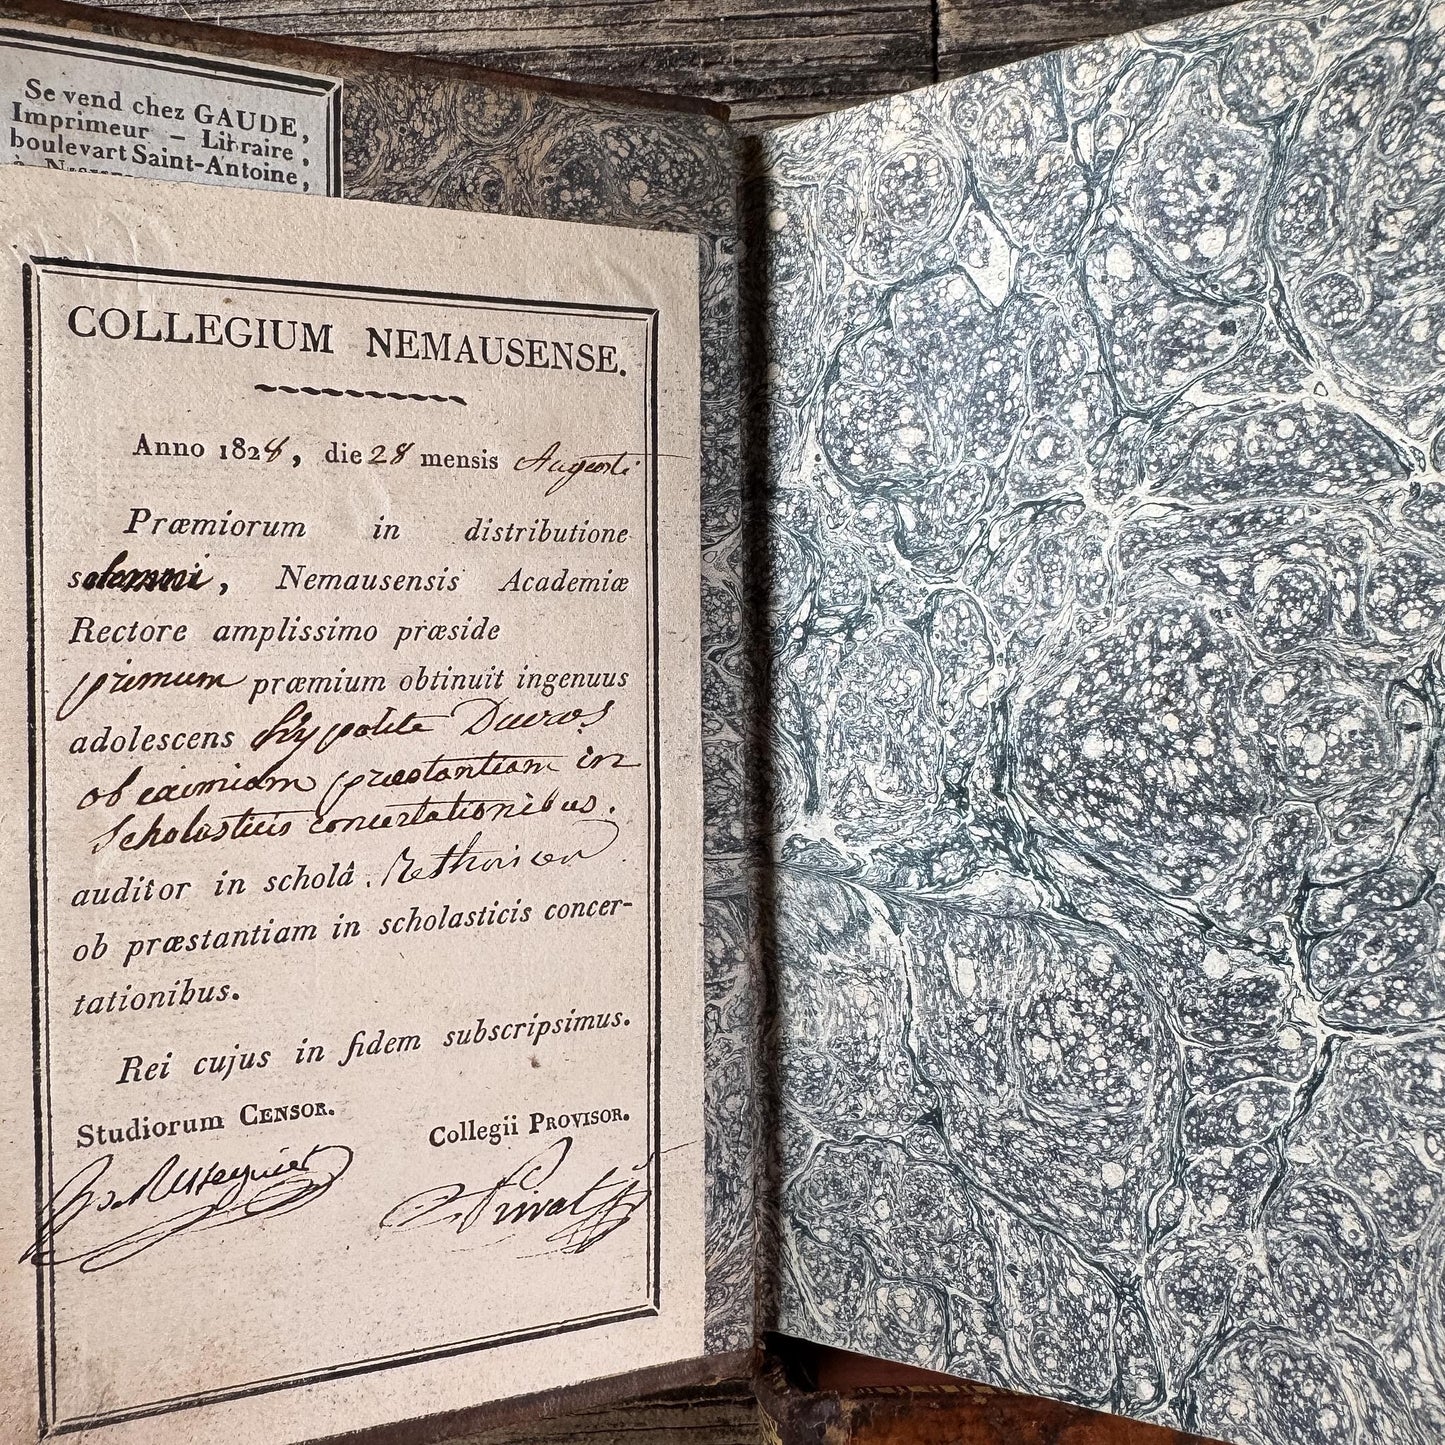 Se vend chez GAUDE,
Imprimeur – Libraire,
boulevart Saint-Antoine,
COLLEGIUM NEMAUSENSE.
Anno 1828, die 28 mensis Augusti
Præmiorum in distributione
solemni, Nemausensis Academiæ
Rectore amplissimo præside
primum præmium obtinuit ingenuus
adolescens hypolite Ducros
ob eximiam præstantiam in
Scholasticis concertationibus.
auditor in scholâ
ob præstantiam in scholasticis concer-
tationibus.
Rei cujus in fidem subscripsimus.
Studiorum CENSOR.
Collegii PROVISOR.
Privat